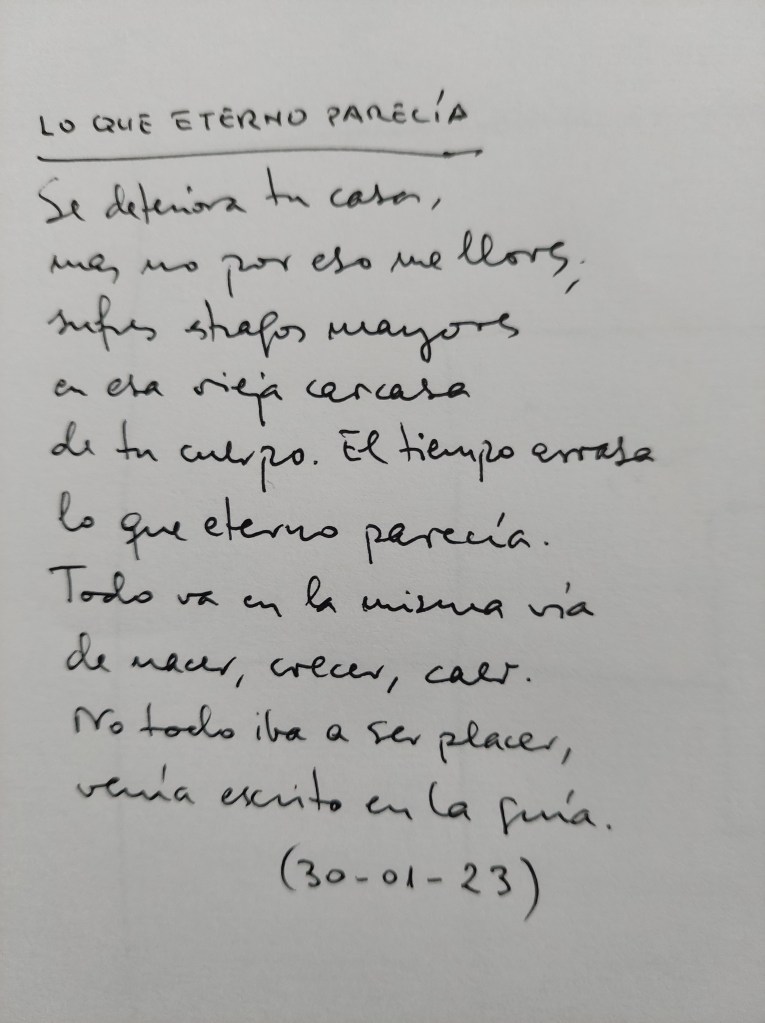 LO QUE ETERNO PARECÍA
Se deteriora tu casa,
mas no por eso me llores;
sufres estragos mayores
en esa vieja carcasa
de tu cuerpo. El tiempo arrasa
lo que eterno parecía.
Todo va en la misma vía
de nacer, crecer, caer.
No todo iba a ser placer,
venía escrito en la guía.
(30-01-23)